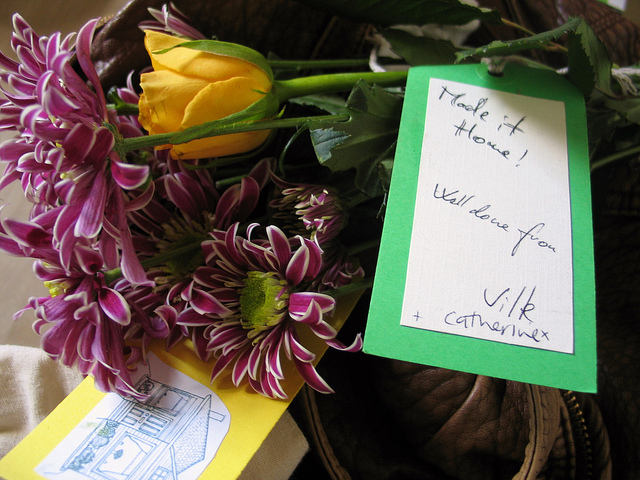 Made it
Home!
Well done from
Vilk
+ catherine x